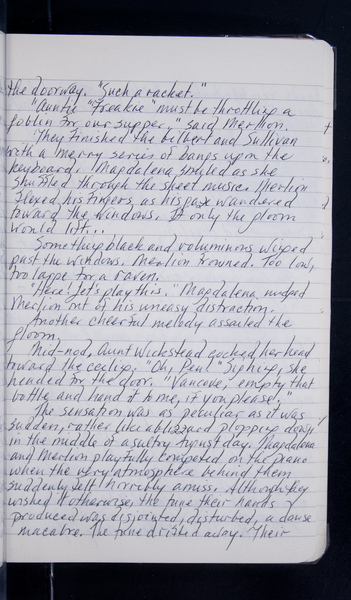 the doorway. "Such a racket."
"Auntie "Freakie" must be throttling a
goblin for our supper," said Merlion.
They finished the Gilbert and Sullivan
with a merry series of bangs upon the
keyboard. Magdalena smiled as she
shuffled through the sheet music. Merlion
flexed his fingers, as his gaze wandered
toward the windows. If only the gloom
would lift...
Something black and voluminous whipped
past the windows. Merlion frowned. Too low,
too large for a raven.
"Here! Let's play this." Magdalena nudged
Merlion out of his uneasy distraction.
Another cheerful melody assailed the
gloom.
Mid-nod, Aunt Wickstead cocked her head
toward the ceiling. "Oh, Paul" Sighing, she
headed for the door. "empty that
bottle and hand it to me, if you please."
The sensation was as peculiar as it was
sudden, rather like a blizzard plopping down
in the middle of a sultry August day. Magdalena
and Merlion playfully competed on the piano
when the very atmosphere behind them
suddenly felt horribly amiss. Although they
wished it otherwise, the tune their hands
produced was disjointed, disturbed, a danse
macabre. The tune drifted away. Their